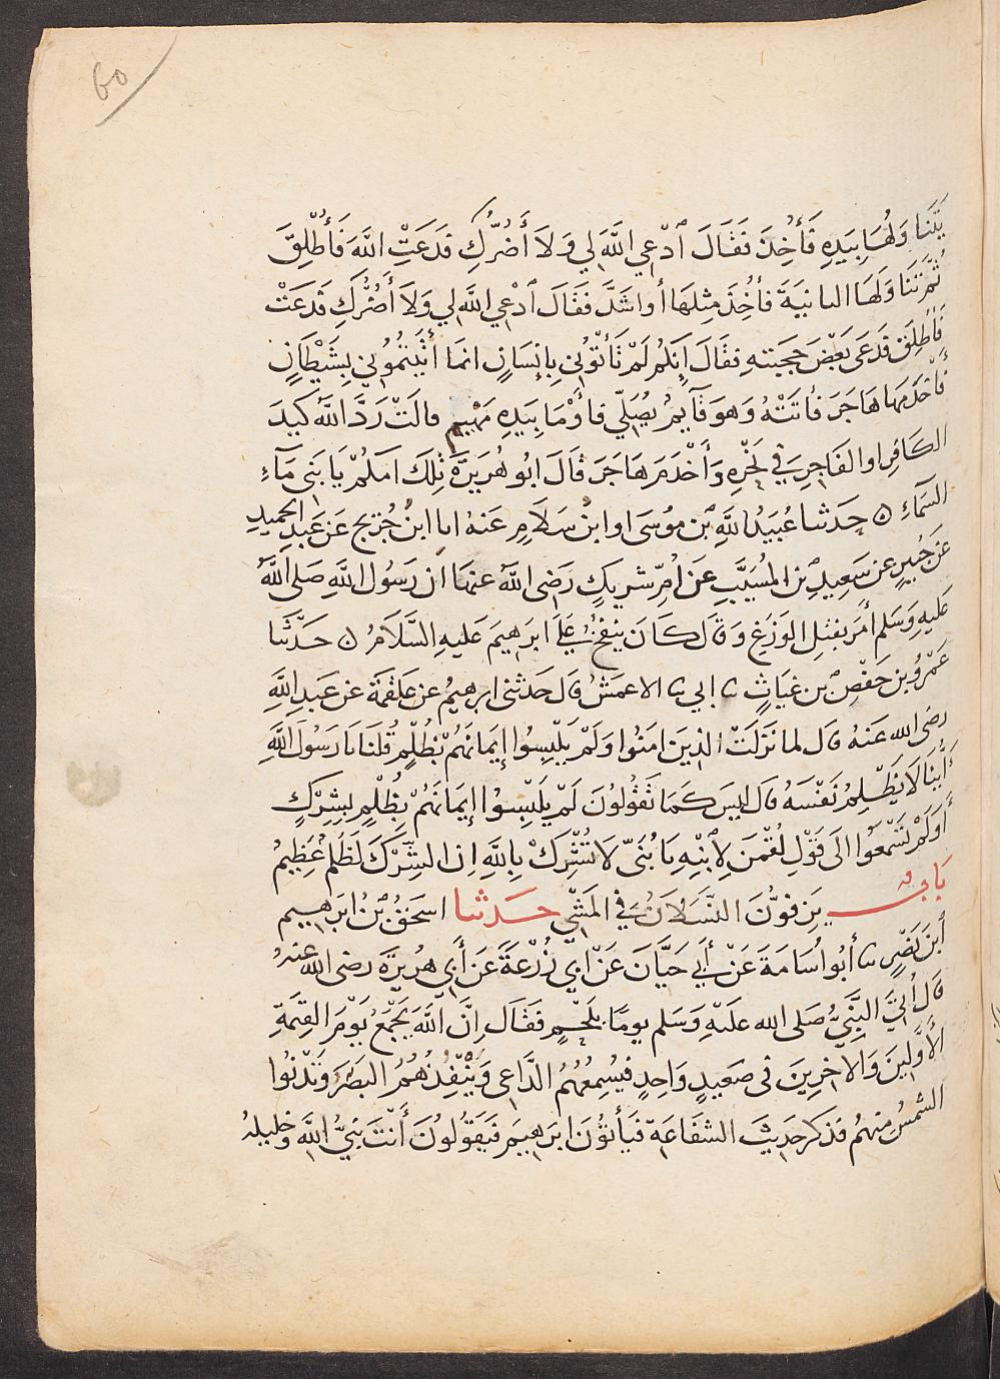 60
يَتَنَاوَلُهَا بِيَدِهِ فَأُخِذَ فَقَالَ ٱدْعِي اللَّهَ لِي وَلَا أَضُرُّكِ فَدَعَتْ اللَّهَ فَأُطْلِقَ
ثُمَّ تَنَاوَلَهَا الثانِيَةَ فَأُخِذَ مِثْلَهَا أَو اشَدَّ فَقَالَ ٱدْعِي اللَّهَ لِي وَلَا أَضُرُّكِ فَدَعَتْ
فَأُطْلِقَ فَدَعَى بَعْضَ حَجَبَتِهِ فقَالَ إِنَكُمْ لَمْ تَأْتُوْنِي بِإِنسَانٍ انمَا أَتَيْتُمُوْنِي بِشَيْطَانٍ
فَأَخْدَمَهَا هَاجَرَ فَأَتَتْهُ وَهوَ قَآيِمٌ يُصَلِّي فاَوْمَا بِيَدِهِ مَهْيَم قالَتْ رَدَّ اللَّهُ كَيدَ
الكَافِرِ اوِ الفَاجِرِ فِي نَحْرِهِ وَأَخْدَمَ هَاجَرَ قَالَ ابُو هُرَيَرَةَ تِلْكَ امُّكُمْ يَا بَنِى مَآءِ
السَّمَاءِ ه حَدثنا عُبَيدُ اللَّهِ بْن مُوسَى او ابنُ سَلَامٍ عَنهُ انا ابنُ جُرَيج عَن عَبدِ الحَمِيدِ
عَن جُبَيرٍ عن سَعِيدِ بْن المُسَيَّبِ عَن أُمِّ شَرِيكٍ رَضِى اللَّهُ عنهَا ان رَسُولَ اللَّهِ صَلى اللَّهُ
عَليهِ وَسَلم أَمَر بقَتْلِ الوَزَغِ وَقَالَ كَانَ يَنفُخُ عَلَى ابرَهِيمَ عَليهِ السَّلَامُ ه حَدّثَنا
عَمْرُو بن حَفْصِ بْن غِيَاثٍ ثنا ابى ثنا الاعمَشُ قَالَ حَدثنى ابرهيمُ عن عَلقَمَةَ عن عَبدِ اللَّهِ
رضى الله عَنهُ قَال لما نَزَلَتْ الذِينَ امَنُوا وَلَمْ يَلْبِسُوا إِيمَانَهُمْ بْظُلْمٍ قُلنَا يَا رَسُولَ اللَّهِ
أَيُّنَا لَا يَظْلِمُ نَفْسَهُ قَال لَيسَ كَمَا تَقُولُونَ لَمْ يَلْبِسُوا إِيمَانَهُمْ بِظُلْمٍ بِشِرْكٍ
أَوَلَمْ تَسْمَعُوا الَى قَوْلِ لُقْمٰنَ لِابْنِهِ يَا بُنَيَّ لَا تُشْرِكْ بِاللَّهِ اِن الشِّرْكَ لَظُلْمٌ عَظِيْمٌ
بَابٌ يَزِفُّونَ النَّسَلَانُ فِي المَشْي حَدثنا اسحٰقُ بْنُ ابرَهِيم
ابْنِ نَصْرٍ ثنا أَبُو اُسَامَةَ عَنْ أَبِي حَيَّانَ عَنْ ابِي زُرْعَةَ عَن أَبِي هُرَيرَةَ رضى الله عنه
قَال أُتِيَ النَّبِيُّ صَلى الله عَلَيْهِ وَسَلم يومًا بِلَحْمٍ فقَال اِنَّ اللَّهَ يَجْمَعُ يَوْمَ القِيٰمَةِ
الأَوَّلِينَ وَالاخِرِينَ فى صَعِيدٍ وَاحِدٍ فيُسْمِعُهُمُ الدَّاعِى وَيُنْفِدُهُمُ البَصَرُ وَتَدْنُوا
الشمسُ مِنهُم فذكر حَدِيثَ الشفَاعَة فَيَأتُوْنَ ابرَهِيمَ فَيَقُولُوْنَ أَنْتَ نَبِيُّ اللَّهِ وخليلُهُ